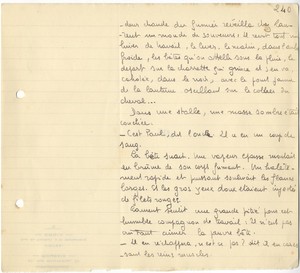 240
deur chaude du fumier réveille chez lui
un monde de souvenirs : il revit tout
hiver de travail, le lever, le matin, dans l'aube
froide, les bêtes qu'on attelle sous la pluie, le
départ sur la charrette qui grince et, en
cahotant, dans le noir, avec le point jaune
de la lanterne oscillant sur le collier du
cheval...
Dans une stalle, une masse sombre était
couchée.
— C'est Paulo, dit Il a eu un coup de
sang.
La bête suait. Une vapeur épaisse montait
en brume de son corps fumant. Un halète-
ment rapide et puissant soulevait les flancs
larges. Et les gros yeux doux étaient injectés
de filets rouges.
Laurent sentit une grande pitié pour cet
humble compagnon de travail : il n'est pas
aimer la pauvre bête.
— Il en réchappera, n'est-ce pas ? dit-il
sous les